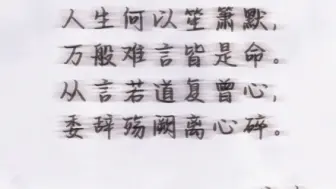 人生何以笙箫默,
万般难言皆是命。
从言若道复曾心,
委辞殇阙离心碎。